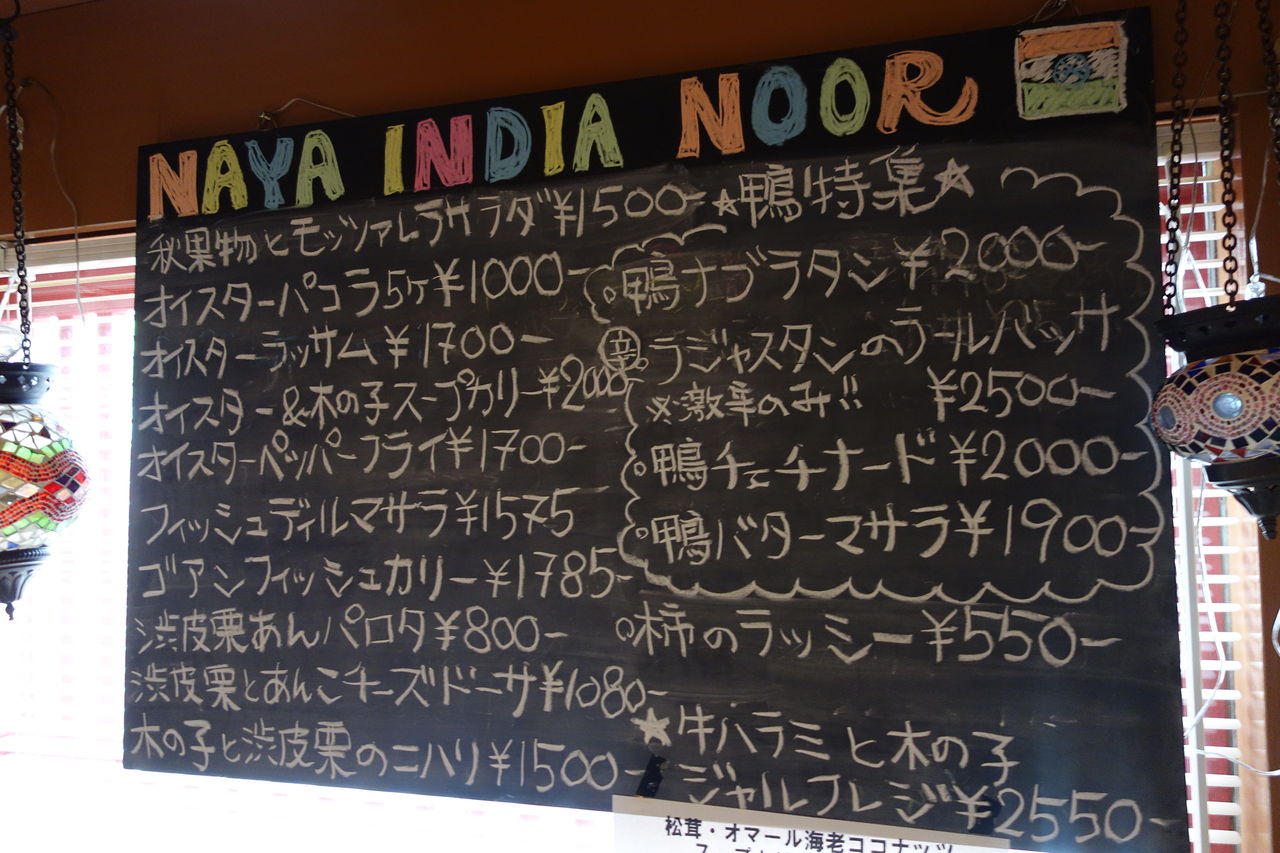 NAYA INDIA NOOR
秋果物とモッツァレラサラダ¥1500-
オイスターパコラ5ヶ¥1000-
オイスターラッサム¥1700-
オイスター&木の子スープカリー¥2000-
オイスターペッパーフライ¥1700-
フィッシュディルマサラ¥1575
ゴアンフィッシュカリー¥1785-
渋皮栗あんパロタ¥800-
渋皮栗とあんこチーズドーサ¥1080-
木の子と渋皮栗のニハリ¥1500-
★鴨特集★
○鴨ナブラタン¥2000-
辛○ラジャスタンのラールバッサ
※激辛のみ!! ¥2500-
○鴨チェチナード¥2000-
○鴨バターマサラ¥1900-
○柿のラッシー¥550-
★牛ハラミと木の子
ジャルフレジ¥2550-
松茸・オマール海老ココナッツ